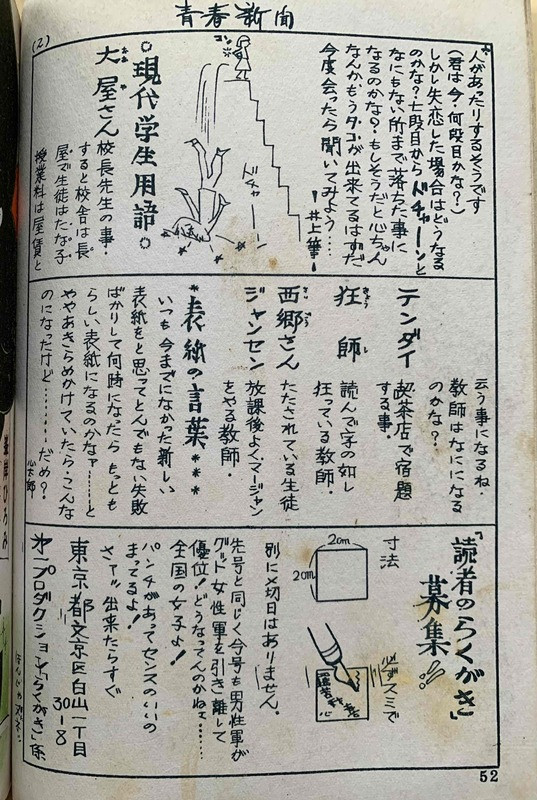 青春新聞
(2)
人があったりするそうです
(君は今・何段目かな?)
しかし失恋した場合はどうなる
のかな?七段目からドチャーンと
なにもない所まで落ちた事に
なるのかな?もしそうだと心ちゃん
なんかもうタコが出来てるはずだ
今度会ったら聞いてみよう…
井上筆
コン
ドチャー
現代学生用語
大屋さん
おおや
校長先生の事・
すると校舎は長
屋で生徒はたな子
授業料は屋賃と
云う事になるね・
教師はなにになる
のかな?
テンダイ
喫茶店で宿題
する事・
狂師
きょうし
読んで字の如し
狂っている教師・
西郷さん
さいごう
たたされている生徒
ジャンセン
放課後よくマージャン
をやる教師・
表紙の言葉
いつも今までになかった新しい
表紙をと思ってとんでもない失敗
ばかりして何時になったらもっとも
らしい表紙になるのかなァ………と
ややあきらめかけていたらこんな
のになったけど………だめ?
「読者のらくがき」
募集
寸法
2cm
2cm
必ずスミで
別に〆切日はありません。
先号と同じく今号も男性軍が
グッド女性軍を引き離して
優位!どうなってんのかねェ……
全国の女子よ!
パンチがあってセンスのいいの
まってるよ!
さァッ出来たらすぐ
東京都文京区白山一丁目
30-18
プロダクション「らくがき」係
52